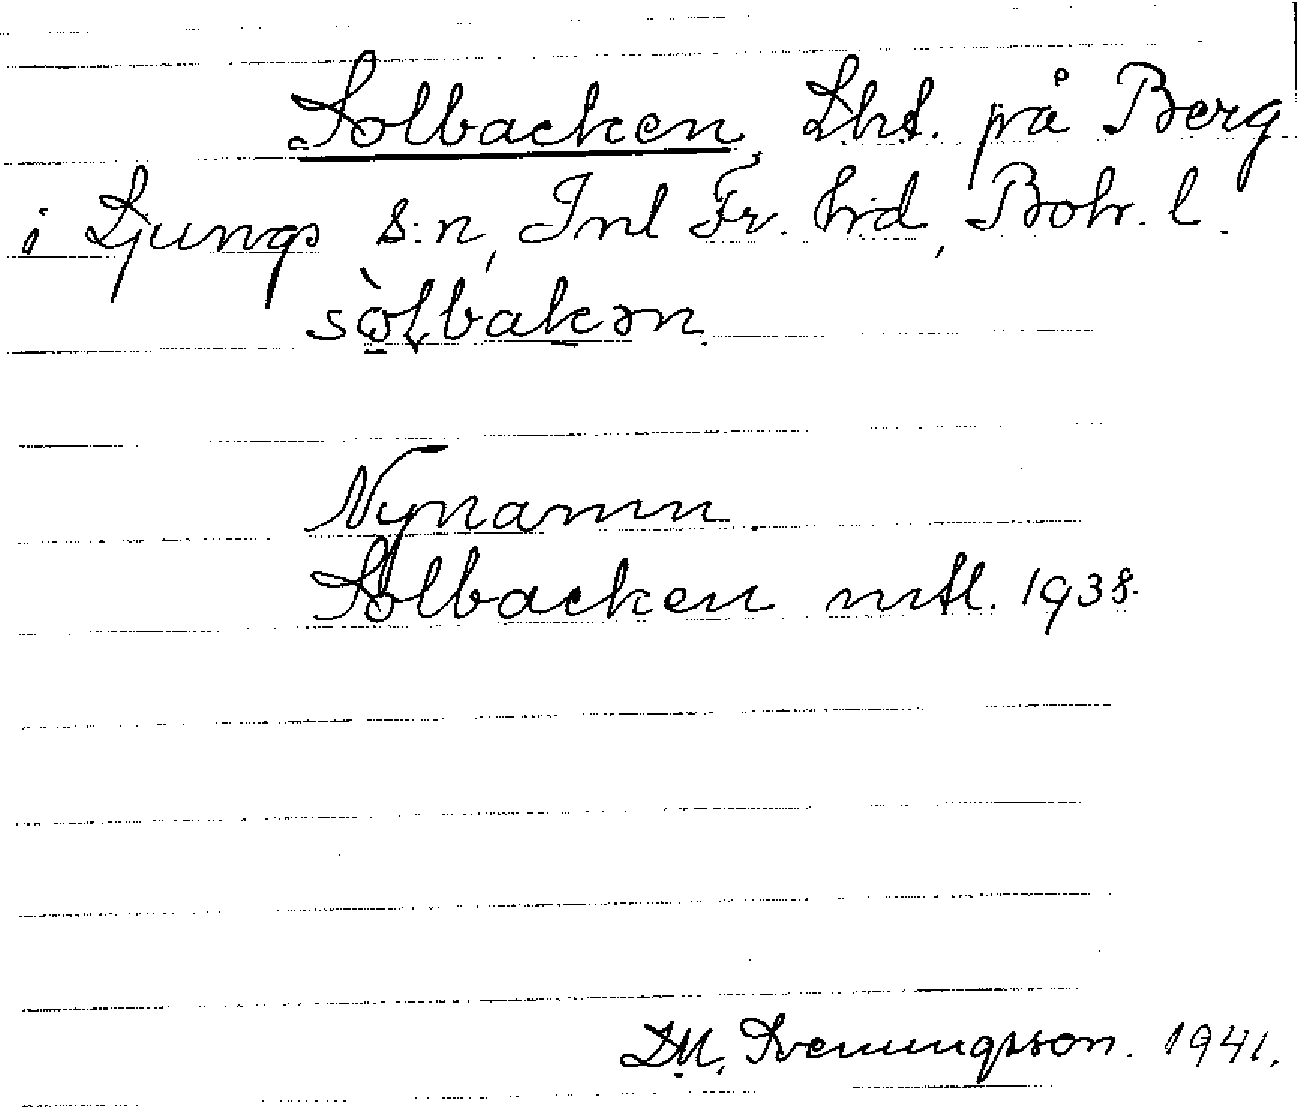 Solbacken, Lht. på Berg
i Ljungs s:n, Inl Fr. hd, Boh. l.
sòlbakən.
Nynamn.
Solbacken mtl. 1938.
Svenungsson. 1941.